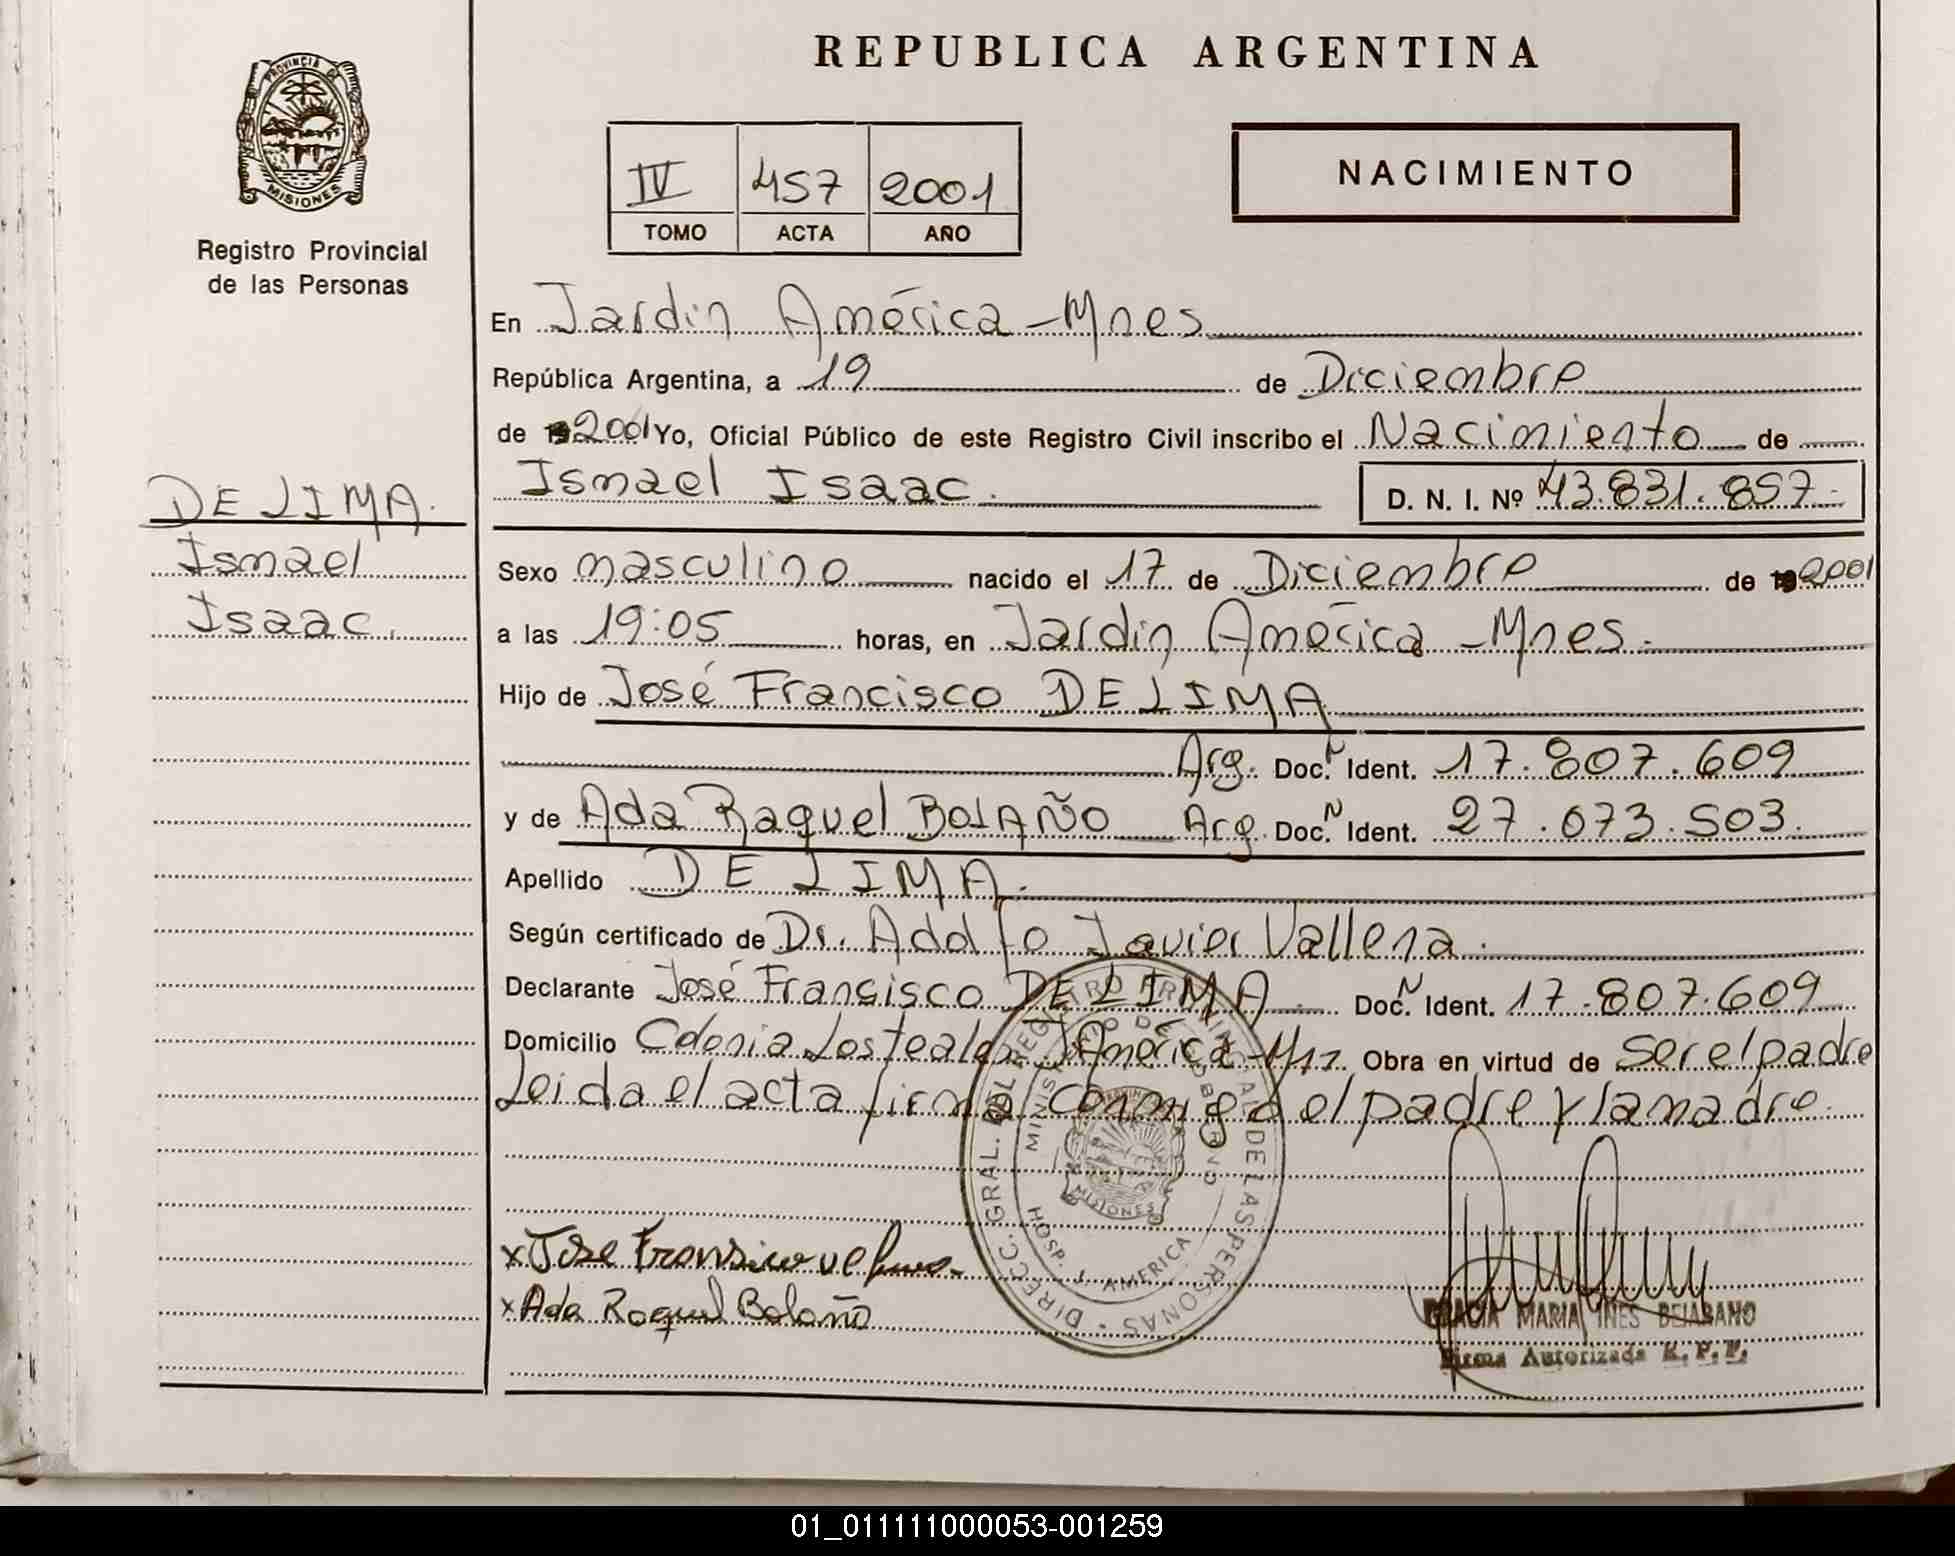 REPUBLICA ARGENTINA
PROVINCIA DE
MISIONES
Registro Provincial
de las Personas
IV 457 2001
TOMO ACTA AÑO
NACIMIENTO
En Jardin América - Mnes
República Argentina, a 19 de Diciembre
de 2001 Yo, Oficial Público de este Registro Civil inscribo el Nacimiento de
Ismael Isaac. D. N. I. Nº 43.831.857-
DE LIMA.
Ismael
Isaac.
Sexo masculino nacido el 17 de Diciembre de 2001
a las 19:05 horas, en Jardin América - Mnes.
Hijo de José Francisco DE LIMA
Arg. Doc. N Ident. 17.807.609
y de Ada Raquel BOLAÑO Arg. Doc. N Ident. 27.073.503.
Apellido DE LIMA.
Según certificado de Dr. Adolfo Javier Vallena.
Declarante José Francisco DE LIMA. Doc. N Ident. 17.807.609
Domicilio Colonia Los J América Obra en virtud de ser el padre
Leida el acta firma Conmigo el padre y la madre.
DIRECC. GRAL. DEL REGISTRO PROVINCIAL DE LAS PERSONAS
MINISTERIO DE GOBIERNO
HOSP. J. AMERICA
MISIONES
x Jose
x Ada Raquel Bolaño
GRACIA MARIA INES BEJARANO
Firma Autorizada
01_011111000053-001259